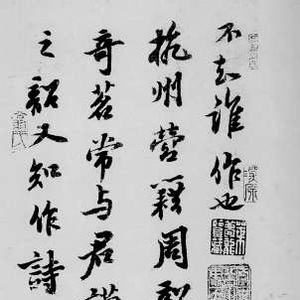 不知誰作也
杭州營籍周韶
奇茗常與君謨
之韶又知作詩